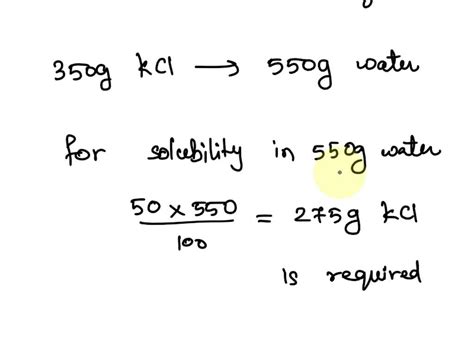 350g KCl → 550g water
for solubility in 550g water
50 × 550 / 100 = 275g KCl
is required